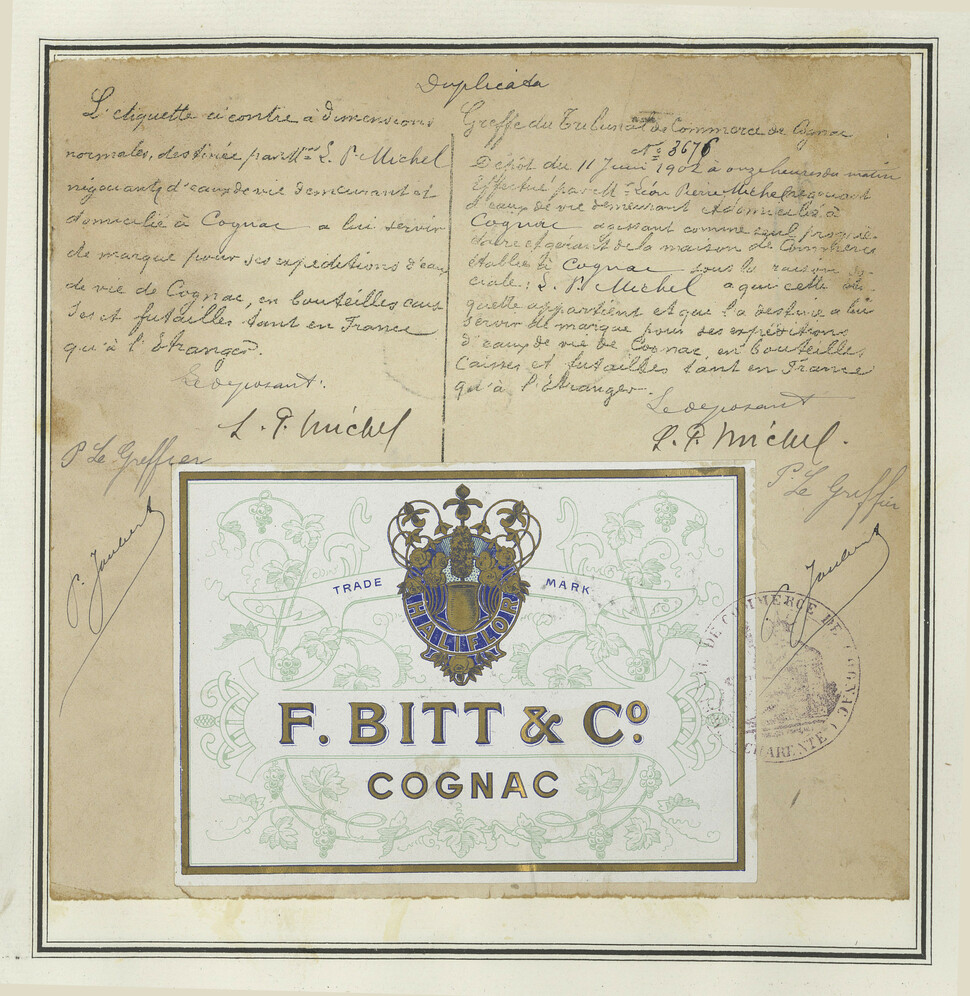 Duplicata
L'etiquette ci contre à dimensions
normales, destinée par Mr L. P. Michel
négociant d'eaux de vie demeurant et
domicilié à Cognac a lui servir
de marque pour ses expeditions d'eaux
de vie de Cognac, en bouteilles cais
ses et futailles tant en France
qu'à l'Etranger.
Le deposant:
L. P. Michel
P. Le Greffier
Greffe du Tribunal de Commerce de Cognac
No 3676
Dépôt du 11 Juin 1902 à onze heures du matin
Effectué par Mr Léon Pierre Michel négociant
d'eaux de vie demeurant et domicilié à
Cognac agissant comme seul proprié-
taire et gérant de la maison de Commerce
établie à Cognac sous la raison so-
ciale: L. P. Michel a qui cette éti-
quette appartient et que l'a destine a lui
servir de marque pour ses expéditions
d'eaux de vie de Cognac, en bouteilles
Caisses et futailles tant en France
qu'à l'Etranger.
Le deposant
L. P. Michel.
P. Le Greffier
TRADE MARK
HALIFLOR
F. BITT & Co.
COGNAC
DE COMMERCE DE COGNAC
CHARENTE